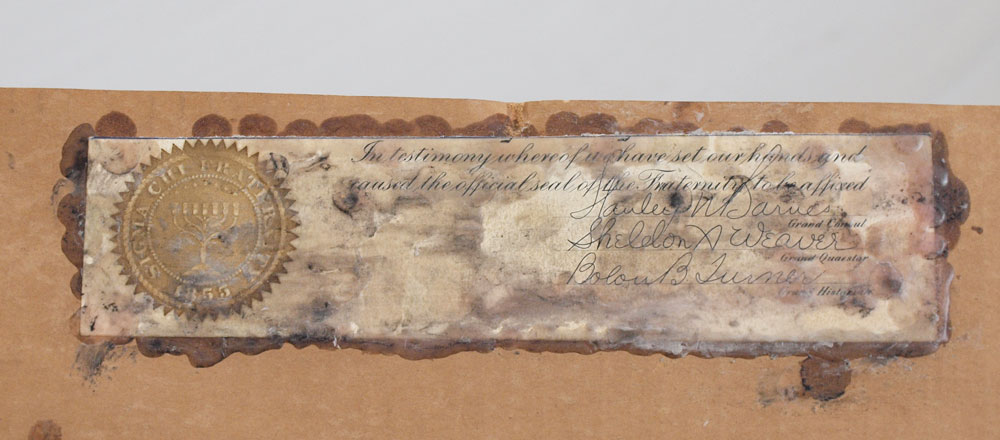 In testimony whereof we have set our hands and
caused the official seal of the Fraternity to be affixed
Stanley N Barnes
Grand Consul
Sheldon A Weaver
Grand Quaestor
Bolon B. Turner
Grand Historian
SIGMA CHI FRATERNITY
1855